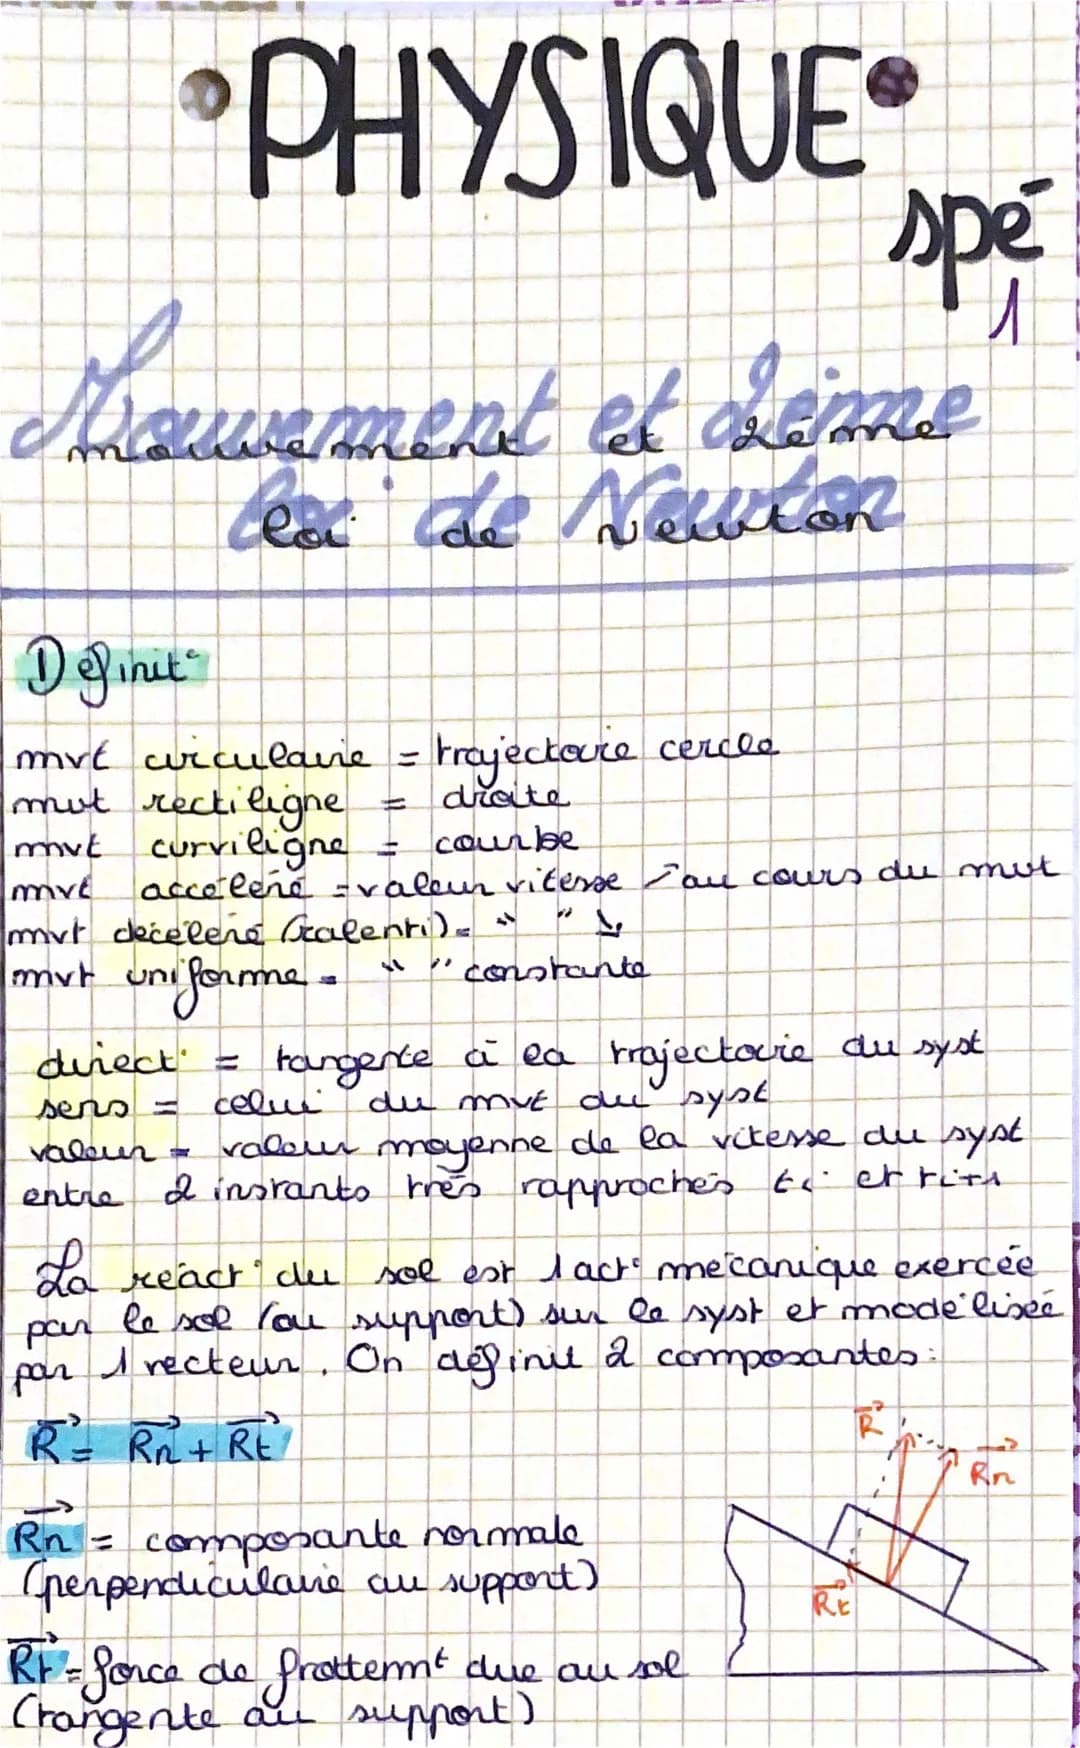 PHYSIQUE
spé
1
Mouvement et 2ème
loi de Newton
Définit°
mvt circulaire = trajectoire cercle
mvt rectiligne = droite
mvt curviligne = courbe
mvt accéléré = valeur vitesse ↗ au cours du mvt
mvt décéléré (ralenti) = " " ↘
mvt uniforme = " " constante
direct° = tangente à la trajectoire du syst
sens = celui du mvt du syst
valeur = valeur moyenne de la vitesse du syst
entre 2 instants très rapprochés ti et ti+1
La réact° du sol est 1 act° mécanique exercée
par le sol (ou support) sur le syst et modélisée
par 1 vecteur. On définit 2 composantes :
R⃗ = Rn⃗ + Rt⃗
R⃗
Rn⃗
Rn⃗ = composante normale
(perpendiculaire au support)
Rt⃗
Rt⃗ = force de frottemt due au sol
(tangente au support)